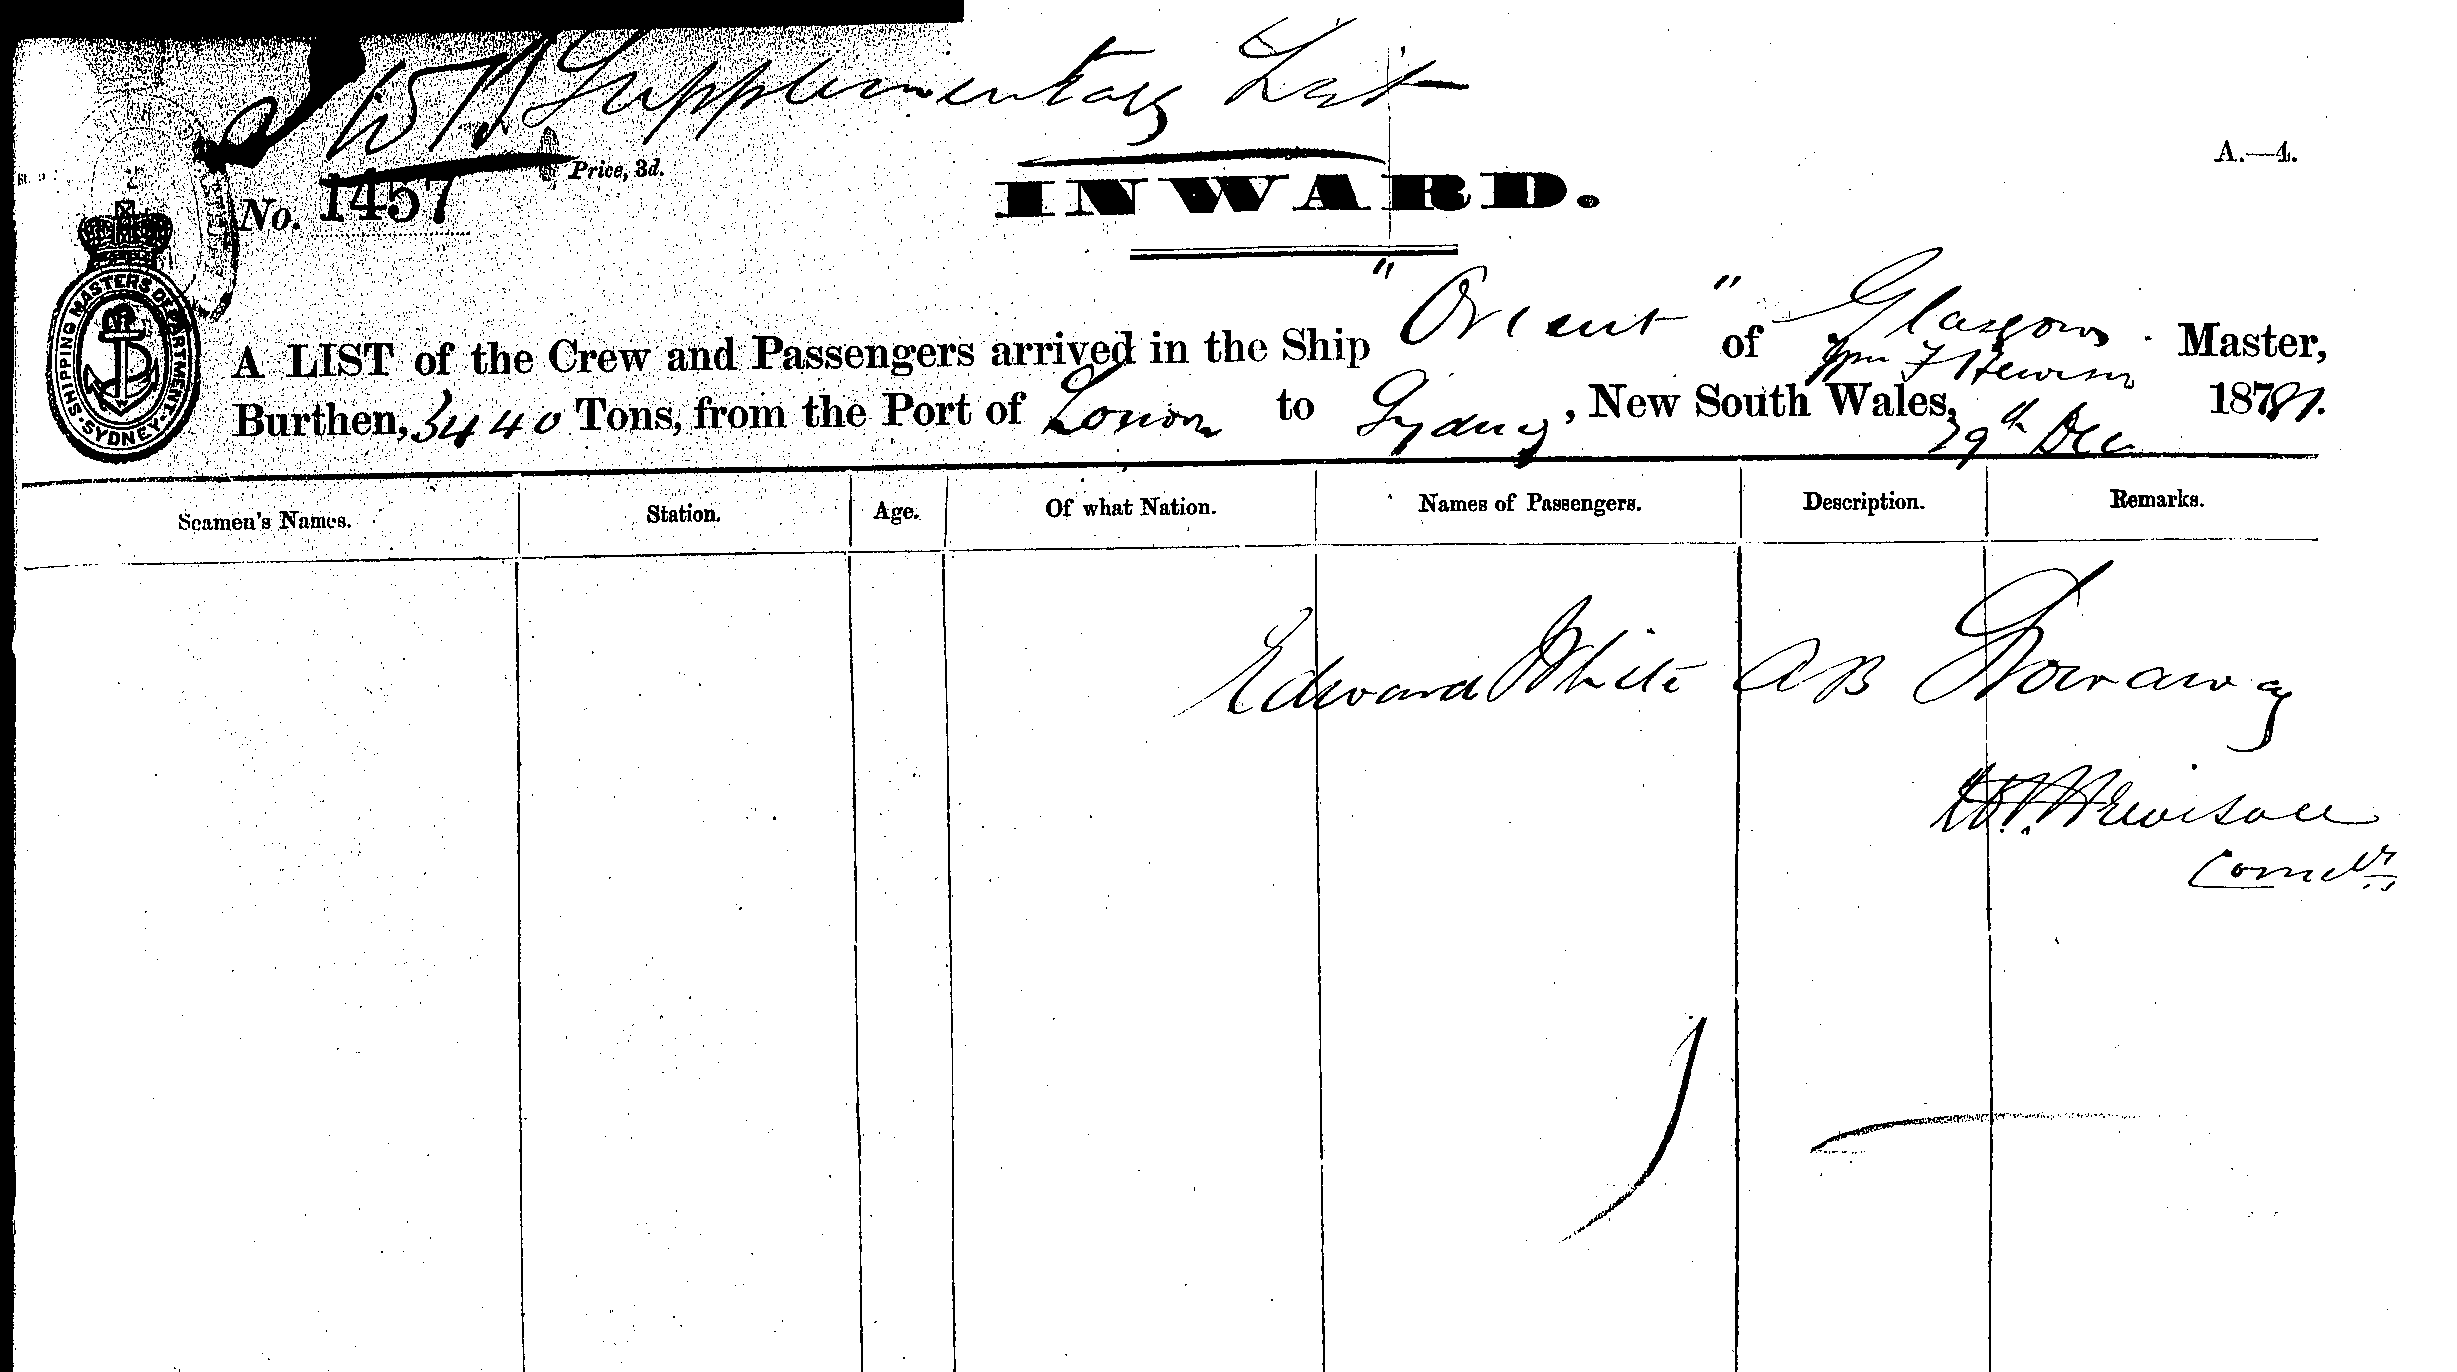 Supplementary List
A.—4.
Price, 3d.
No. 1457
INWARD.
SHIPPING MASTERS DEPARTMENT. SYDNEY.
A LIST of the Crew and Passengers arrived in the Ship "Orient" of Glasgow. Master,
Wm F Hewison
Burthen, 3440 Tons, from the Port of London to Sydney, New South Wales, 29th Dec 18781.
Seamen's Names. Station. Age. Of what Nation. Names of Passengers. Description. Remarks.
Edward White AB Stowaway
W. F. Hewison
Comdr.